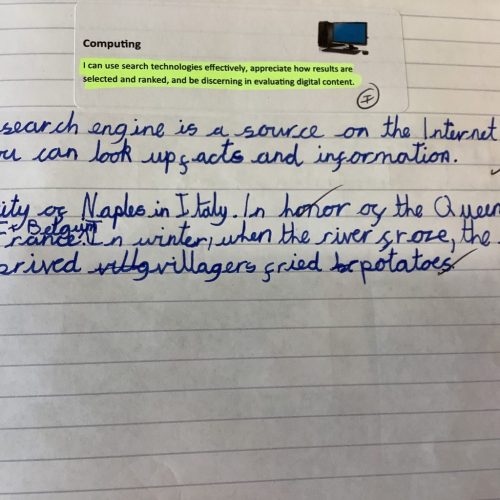 Computing
I can use search technologies effectively, appreciate how results are
selected and ranked, and be discerning in evaluating digital content.
I
search engine is a source on the Internet
ou can look up facts and information.
ity of Naples in Italy. In honor of the Queen
+ Belgum
France. In winter, when the river froze, the
prived villg villagers fried be potatoes.